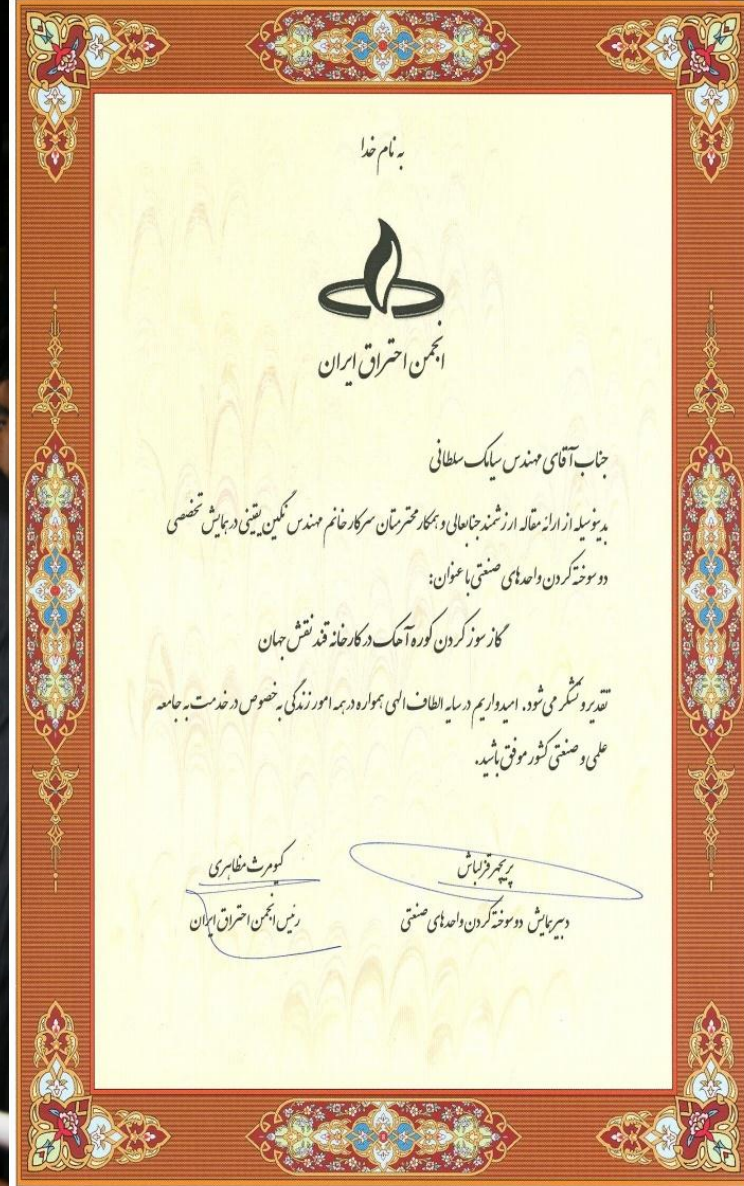 به نام خدا
انجمن احتراق ایران
جناب آقای مهندس سیامک سلطانی
بدینوسیله از ارائه مقاله ارزشمند جنابعالی و همکار محترمتان سرکار خانم مهندس نگین یقینی در همایش تخصصی
دو سوخته کردن واحدهای صنعتی با عنوان:
گاز سوز کردن کوره آهک در کارخانه قند نقش جهان
تقدیر و تشکر می شود. امیدواریم در سایه الطاف الهی همواره در همه امور زندگی به خصوص در خدمت به جامعه
علمی و صنعتی کشور موفق باشید.
پریچهر قزلباش
دبیر همایش دو سوخته کردن واحدهای صنعتی
کیومرث مظاهری
رئیس انجمن احتراق ایران